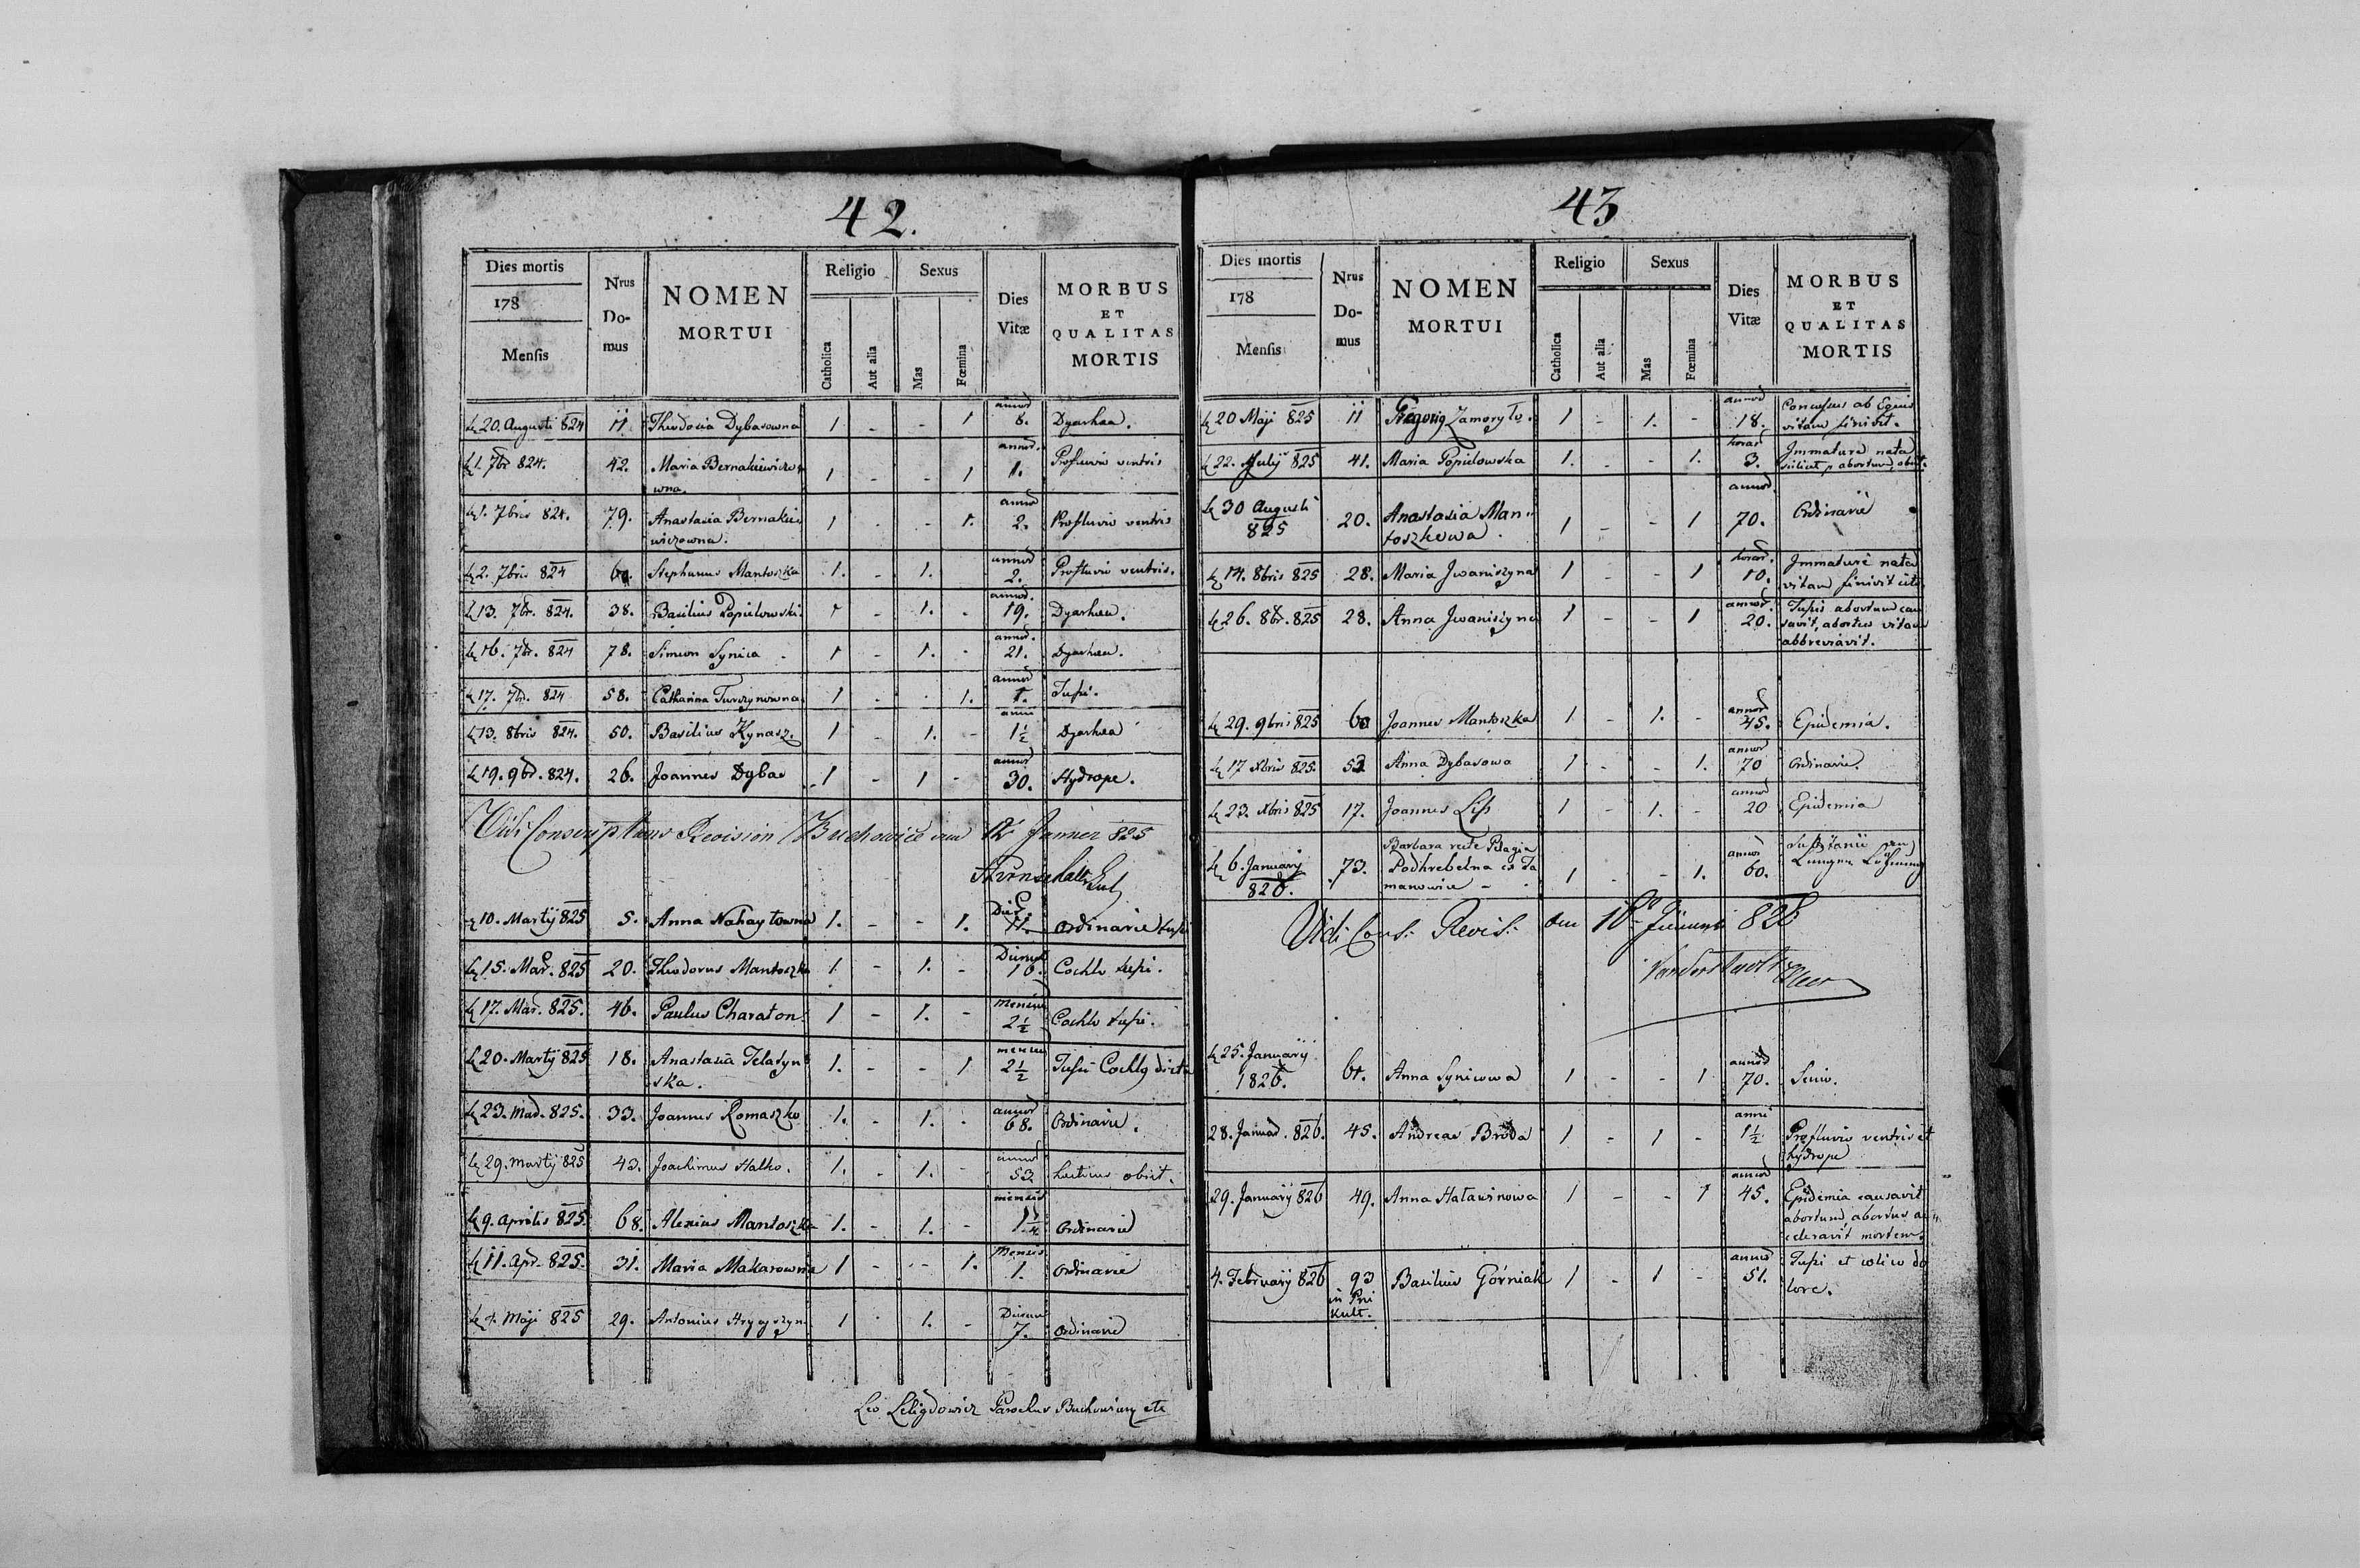 42.
Dies mortis
178
Mensis
Nrus Domus
NOMEN MORTUI
Religio
Catholica
Aut alia
Sexus
Mas
Fœmina
Dies Vitæ
MORBUS ET QUALITAS MORTIS
20. Augusti 824 11 Theodosia Dybasowna 1 - - 1 annor 8. Dyarhea.
1. 7br 824. 42. Maria Bernakiewiczo- 1 - - 1 annor. 1. Profluvio ventris
wna.
1. 7bris 824. 79. Anastasia Bernakie 1 - - 1. annor 2. Profluvio ventris
wiczowna.
2. 7bris 824 60. Stephanus Mantoszka 1. - 1. annor 2. Profluvio ventris.
13. 7br. 824. 38. Basilius Popielowski 1 - 1. - annor. 19. Dyarhea.
16. 7br. 824 78. Simeon Synica - 1 - 1. - annor. 21. Dyarhea.
17. 7br. 824 58. Catharina Turczynowna 1 - - 1. annor 1. Tussi.
13. 8bris 824. 50. Basilius Kynasz. 1 - 1. - anni 1½ Dyarhea
19. 9br. 824. 26. Joannes Dybas 1 - 1 - annor 30. Hydrope.
Vidi Conscriptions Revision Buchowice am 12 Janner 825
10. Martij 825 5. Anna Nahaytowna 1. - - 1. Die 11. Ordinarie tussi
15. Mar. 825 20. Theodorus Mantoszka 1. - 1. - Dierum 16. Cochlo tussi.
17. Mar. 825. 46. Paulus Charaton. 1 - 1. - mensium 2½ Cochlo tussi.
20. Martij 825 18. Anastasia Telatyn 1. - - 1 mensium 2½ Tussi Cochlo dicta
ska.
23. Mar. 825. 33. Joannes Romaszko 1. - 1. - annor 68. Ordinarie.
29. Martij 825 43. Joachimus Halko. 1. - 1. - annor 53. obiit.
9. Aprilis 825. 68. Alexius Mantoszka 1. - 1. - mensis Ordinarie
11. Apr. 825. 31. Maria Makarowna 1 - - 1. Mensis 1. Ordinarie
Maji 825 29. Antonius Hrycyszyn 1 - 1. - Dierum 7. Ordinarie
Leo Leligdowicz Parochus etc
43
Dies mortis
178
Mensis
Nrus Domus
NOMEN MORTUI
Religio
Catholica
Aut alia
Sexus
Mas
Fœmina
Dies Vitæ
MORBUS ET QUALITAS MORTIS
20 Maji 825 11 Zamoryło. 1 - 1. - annor 18. Concussus ab Equis
vitam finivit.
22. Julij 825 41. Maria Popielowska 1. - - 1. horar 3. Immature nata
scilicet p abortum obiit.
30 Augusti 20. Anastasia Man- 1 - - 1 annor. 70. Ordinarie
825 toszkowa.
14. 8bris 825 28. Maria Iwaniszyna 1 - - 1 horar. 10. Immature nata
vitam finivit cito
26. 8br. 825 28. Anna Iwaniszyna 1 - - 1 annor. 20. Tussis abortum cau
savit, abortus vitam
abbreviavit.
29. 9bris 825 60 Joannes Mantoszka 1 - 1. - annor 45. Epidemia.
17 Xbris 825. 53 Anna Dybasowa 1 - - 1. annor 70 Ordinarie.
23. Xbris 825 17. Joannes Lis 1 - 1. - annor 20 Epidemia
Barbara recte Pelagia
6. Januarij 73. Podhrebelna 1 - - 1. annor 60. Lungen
826.
Vidi Cons. Revis. 828
25. Januarij
1826. 61. Anna Synicowa 1 - - 1 annor 70. Senio.
28. Januar. 826. 45. Andreas Broda 1 - 1 - anni 1½ Profluvio ventris et
hydrope
29. Januarij 826 49. Anna Hatasinowa 1 - - 1 annor 45. Epidemia causavit
abortum, abortus ac-
celeravit mortem.
4. Februarij 826 93 Basilius Górniak 1 - 1 - annor 51. Tussi et colico do
in Pri lore.
kult.